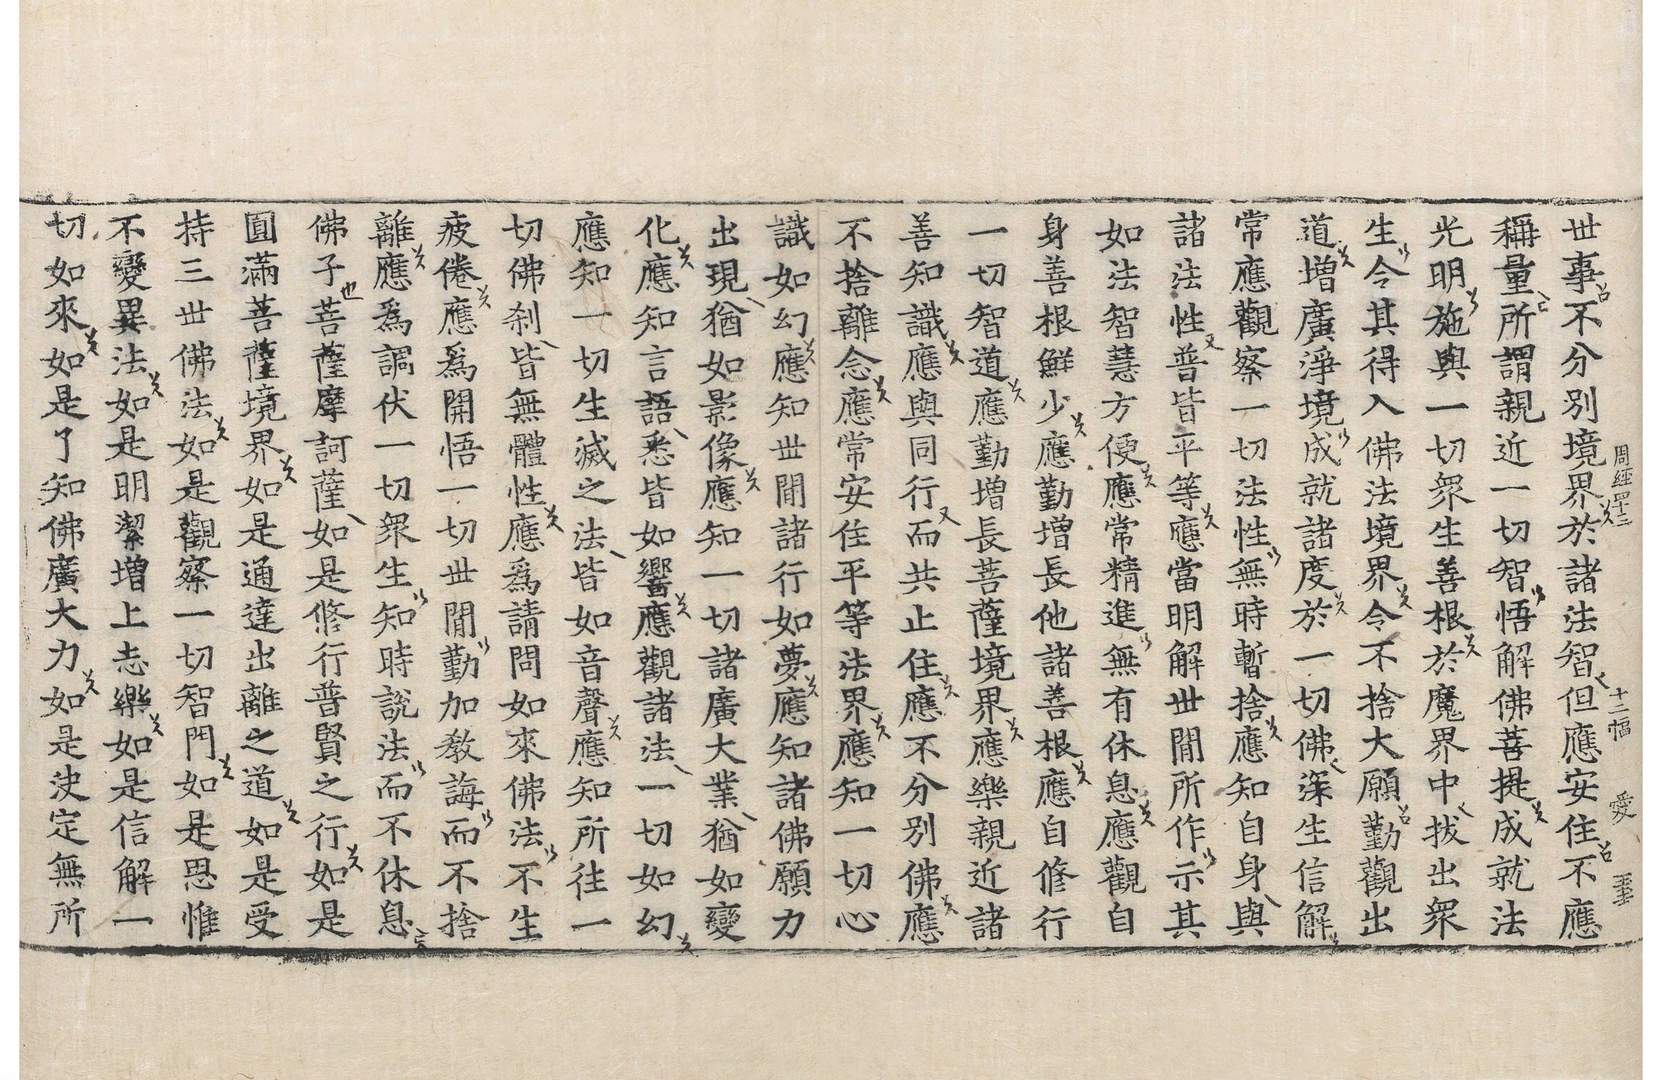 周經四十三 十二幅 愛
丗事不分別境界於諸法智但應安住不應
稱量所謂親近一切智悟解佛菩提成就法
光明施與一切眾生善根於魔界中拔出眾
生令其得入佛法境界令不捨大願勤觀出
道增廣淨境成就諸度於一切佛深生信解
常應觀察一切法性無時暫捨應知自身與
諸法性普皆平等應當明解丗間所作示其
如法智慧方便應常精進無有休息應觀自
身善根鮮少應勤增長他諸善根應自修行
一切智道應勤增長菩薩境界應樂親近諸
善知識應與同行而共止住應不分別佛應
不捨離念應常安住平等法界應知一切心
識如幻應知丗間諸行如夢應知諸佛願力
出現猶如影像應知一切諸廣大業猶如變
化應知言語悉皆如響應觀諸法一切如幻
應知一切生滅之法皆如音聲應知所往一
切佛刹皆無體性應爲請問如來佛法不生
疲倦應爲開悟一切丗間勤加教誨而不捨
離應爲調伏一切眾生知時說法而不休息
佛子菩薩摩訶薩如是修行普賢之行如是
圓滿菩薩境界如是通達出離之道如是受
持三丗佛法如是觀察一切智門如是思惟
不變異法如是明潔增上志樂如是信解一
切如來如是了知佛廣大力如是決定無所